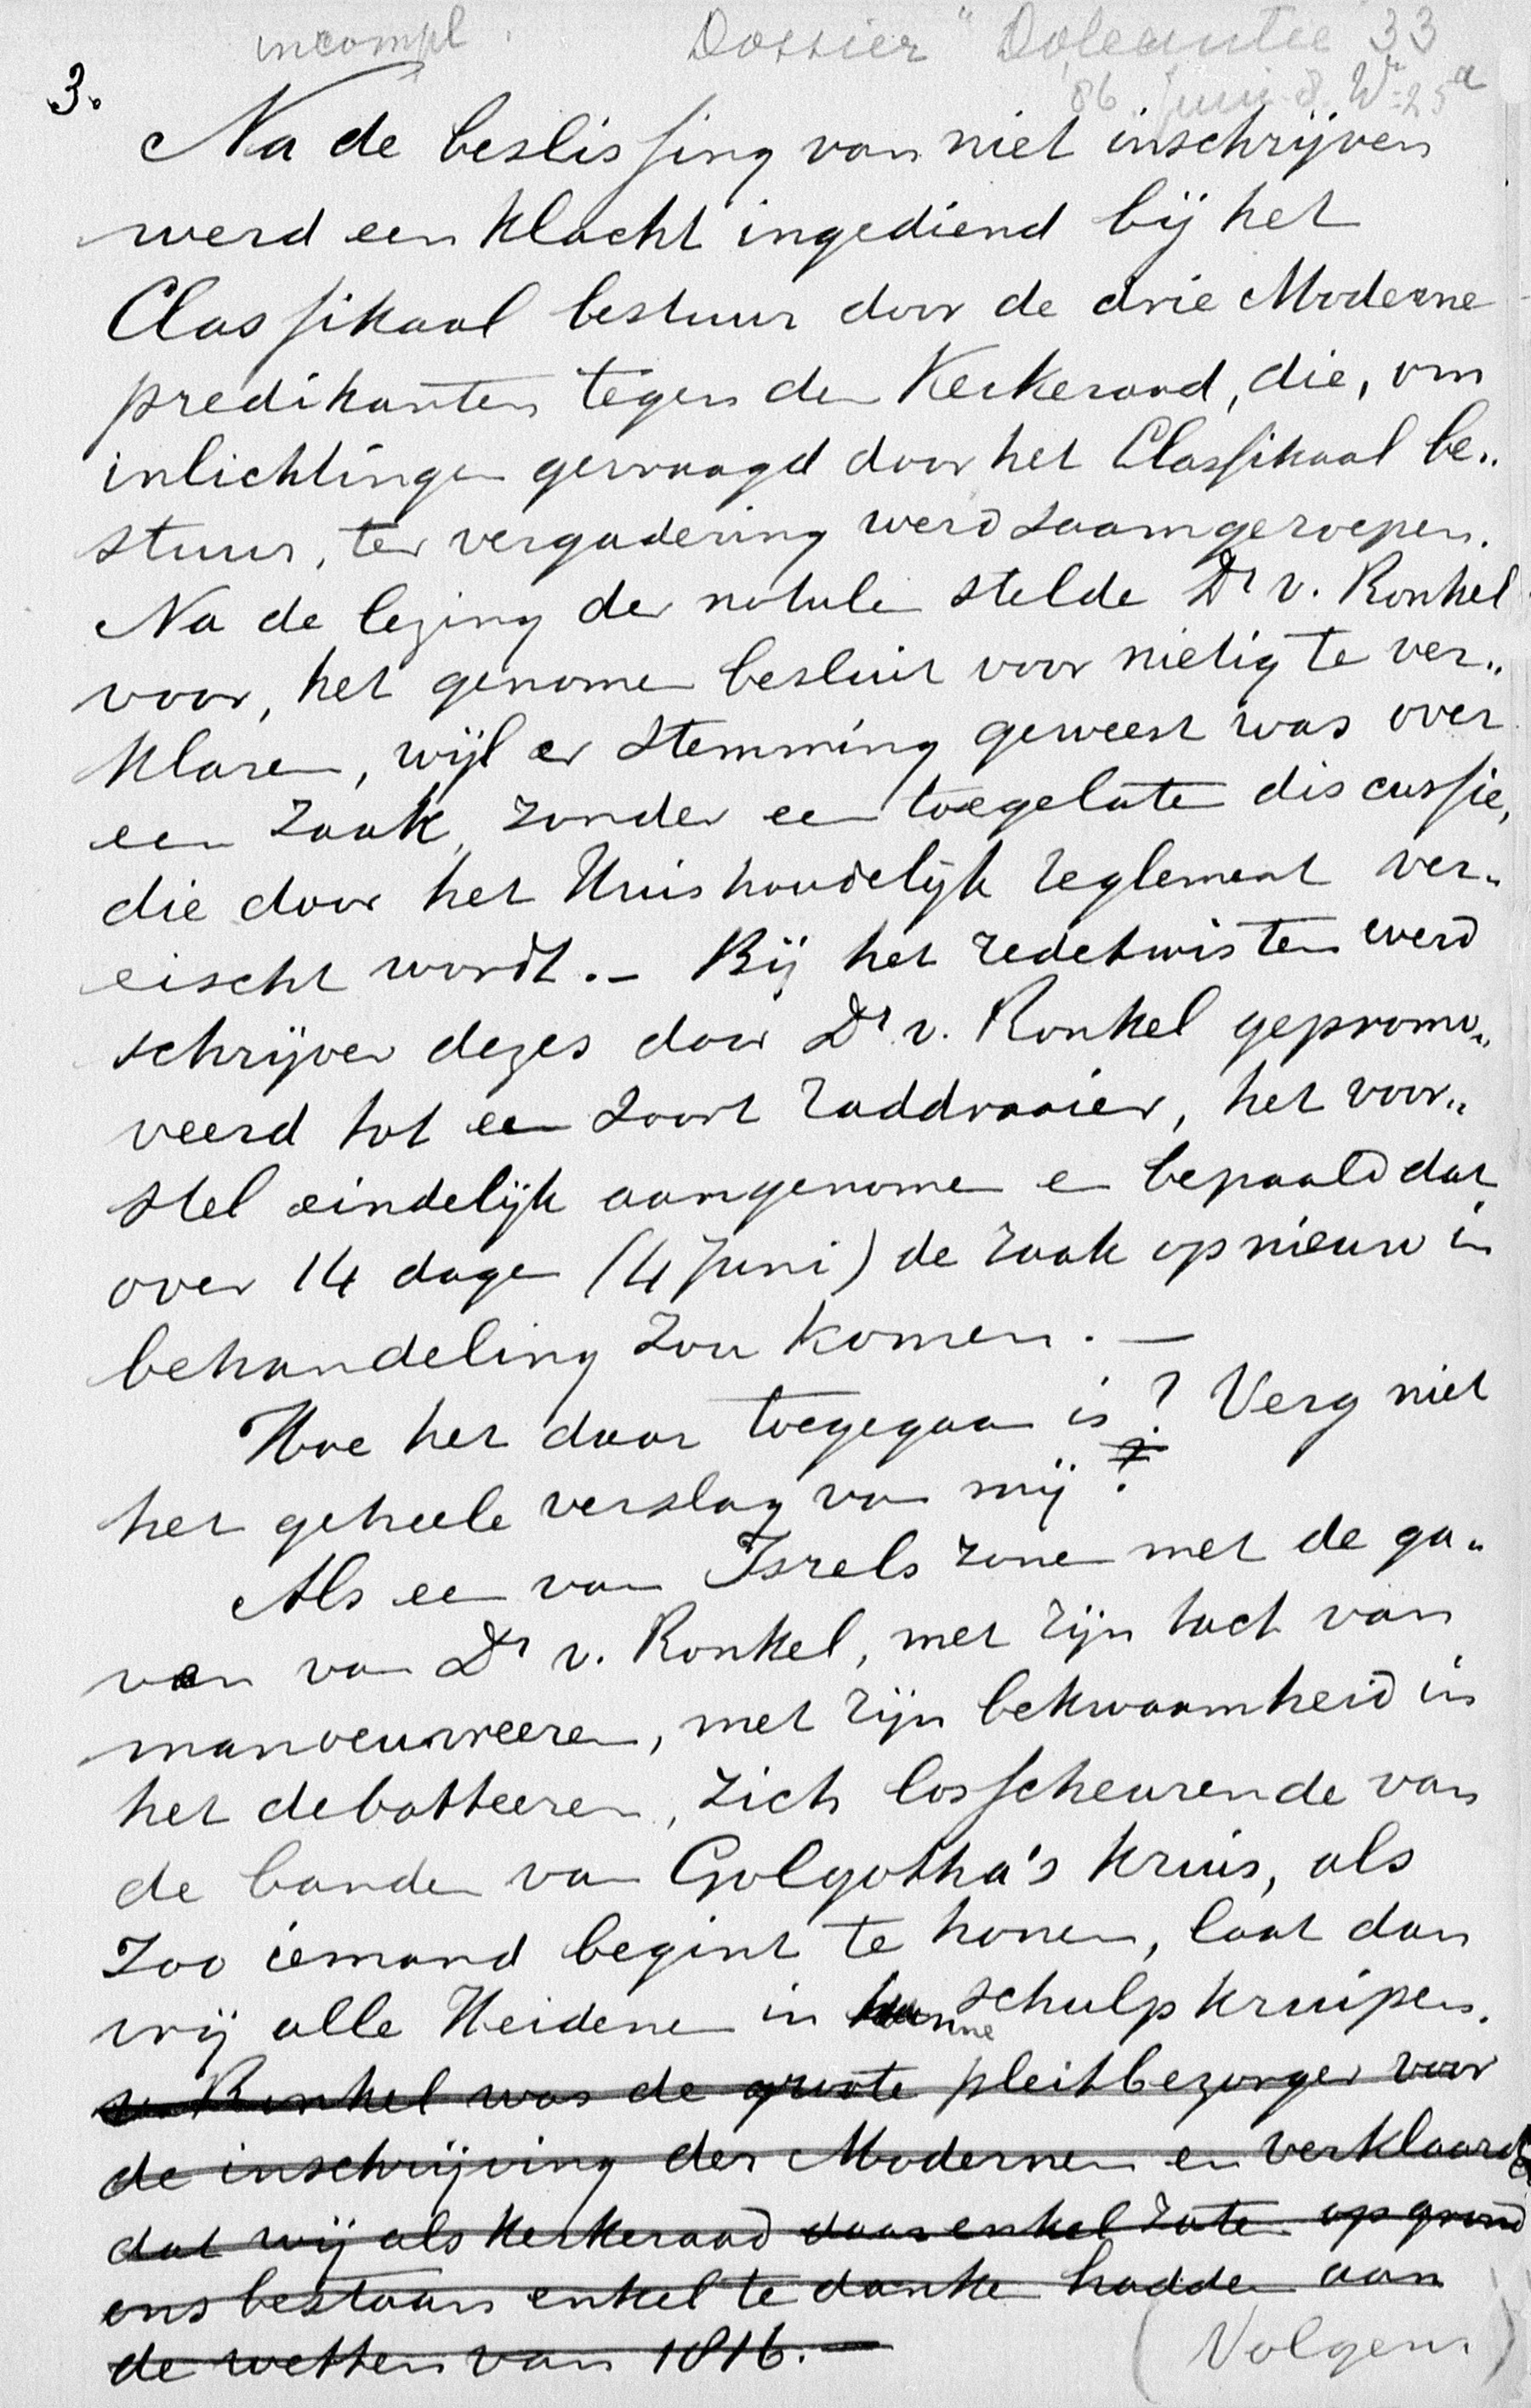 incompl.
Dossier "Doleantie" 33
86 juni 8. W=25a
3.
Na de beslissing van niet inschrijven
werd een klacht ingediend bij het
Classikaal bestuur door de drie Moderne
predikanten tegen den Kerkeraad, die, om
inlichtingen gevraagd door het Classikaal be„
stuur, ter vergadering werd saamgeroepen.
Na de lezing der notulen stelde Dr v. Ronkel
voor, het genomen besluit voor nietig te ver„
klaren, wijl er stemming geweest was over
een zaak, zonder een toegelaten discussie,
die door het Huishoudelijk reglement ver„
eischt wordt. – Bij het redetwisten werd
schrijver dezes door Dr v. Ronkel gepromo„
veerd tot een soort raddraaier, het voor„
stel eindelijk aangenomen en bepaald dat
over 14 dagen (4 Juni) de zaak opnieuw in
behandeling zou komen. –
Hoe het daar toegegaan is? Verg niet
het geheele verslag van mij?
Als een van Isrels zonen met de ga„
ven van Dr v. Ronkel, met zijn tact van
manoeuvreeren, met zijn bekwaamheid in
het debatteeren, zich losscheurende van
de banden van Golgotha's kruis, als
zoo iemand begint te honen, laat dan
vrij alle Heidenen in hunne schulp kruipen.
v. Ronkel was de groote pleitbezorger voor
de inschrijving der Modernen en verklaarde
dat wij als Kerkeraad daar enkel zaten op grond
ons bestaan enkel te danken hadden aan
de wetten van 1816. –
(Volgens)